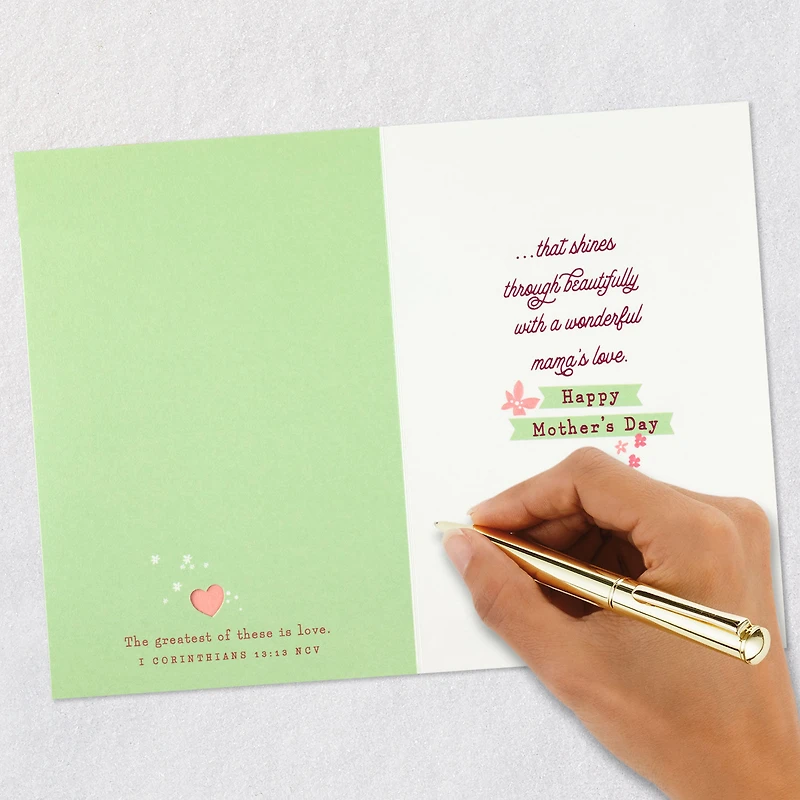 The greatest of these is love.
I CORINTHIANS 13:13 NCV
...that shines
through beautifully
with a wonderful
mama's love.
Happy
Mother's Day